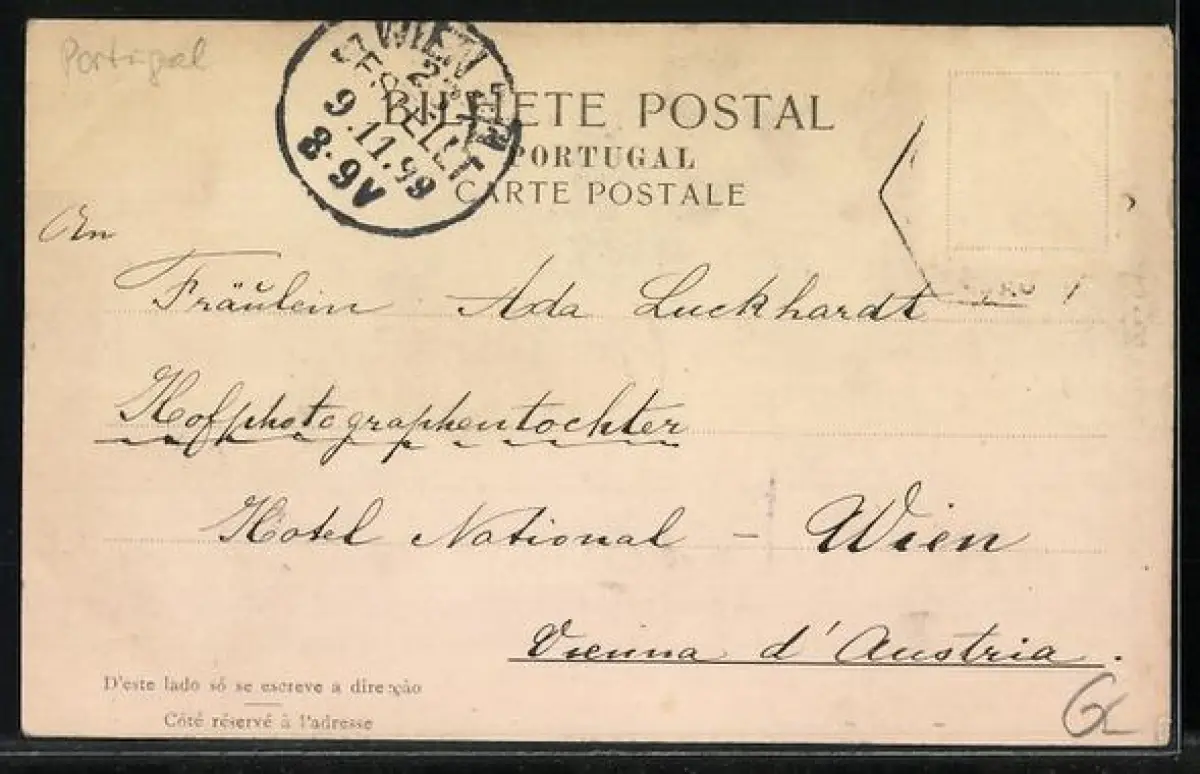 Portugal
WIEN
BESTELLT
9.11.99
8-9V
BILHETE POSTAL
PORTUGAL
CARTE POSTALE
An
Fräulein Ada Luckhardt
Hofphotographentochter
Hotel National – Wien
Vienna d'Austria.
D'este lado só se escreve a direcção
Côté réservé à l'adresse